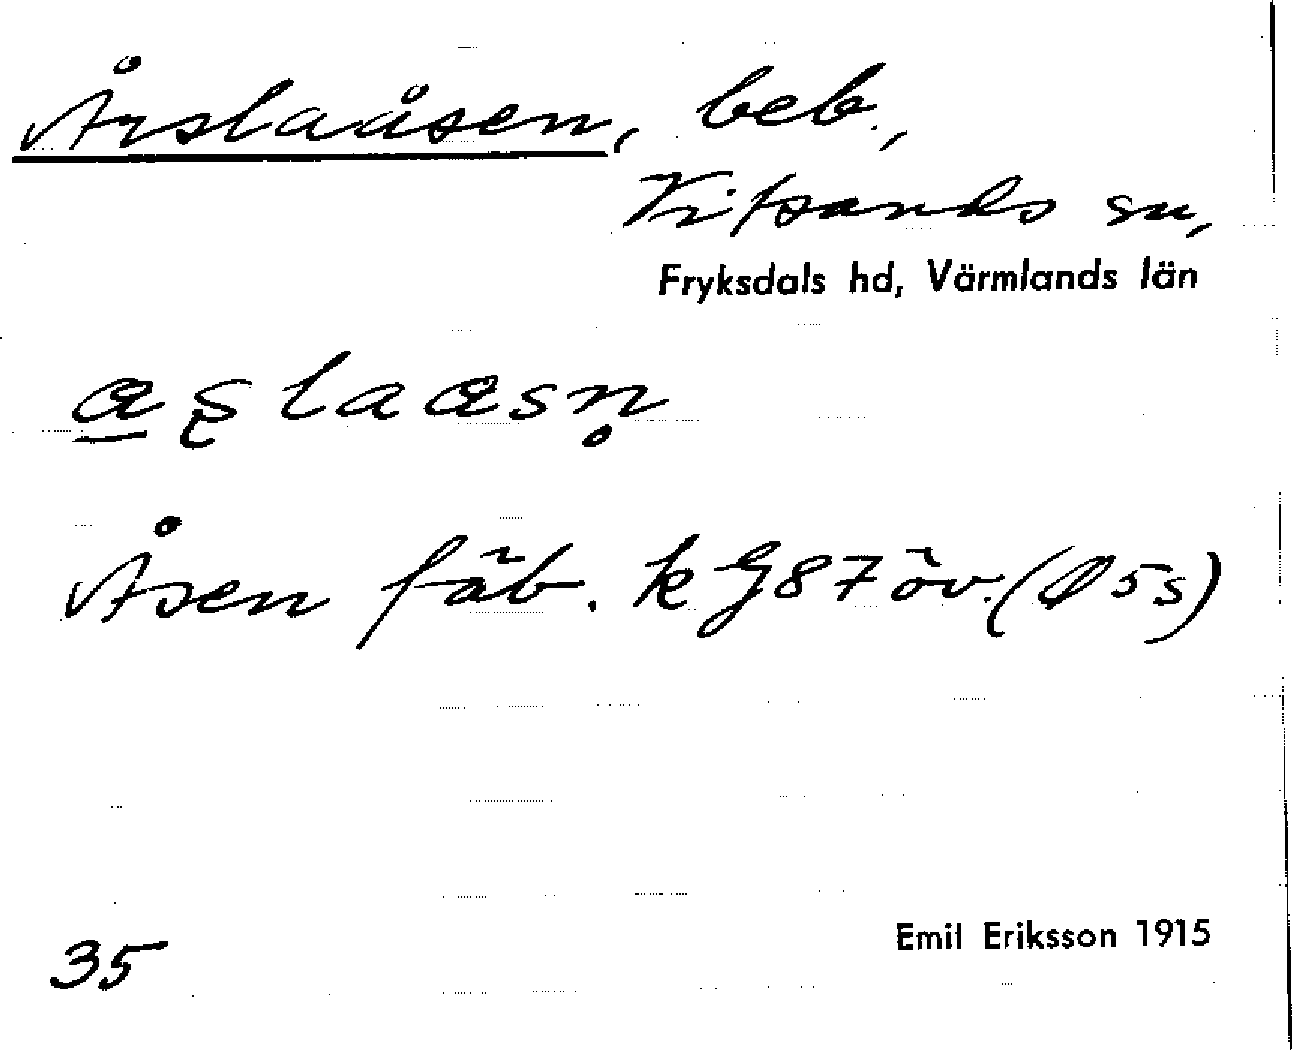 Årslaåsen, beb.,
Vitsands sn,
Fryksdals hd, Värmlands län
Åsen fäb. k G87 öv. (Ø 5s)
Emil Eriksson 1915
35